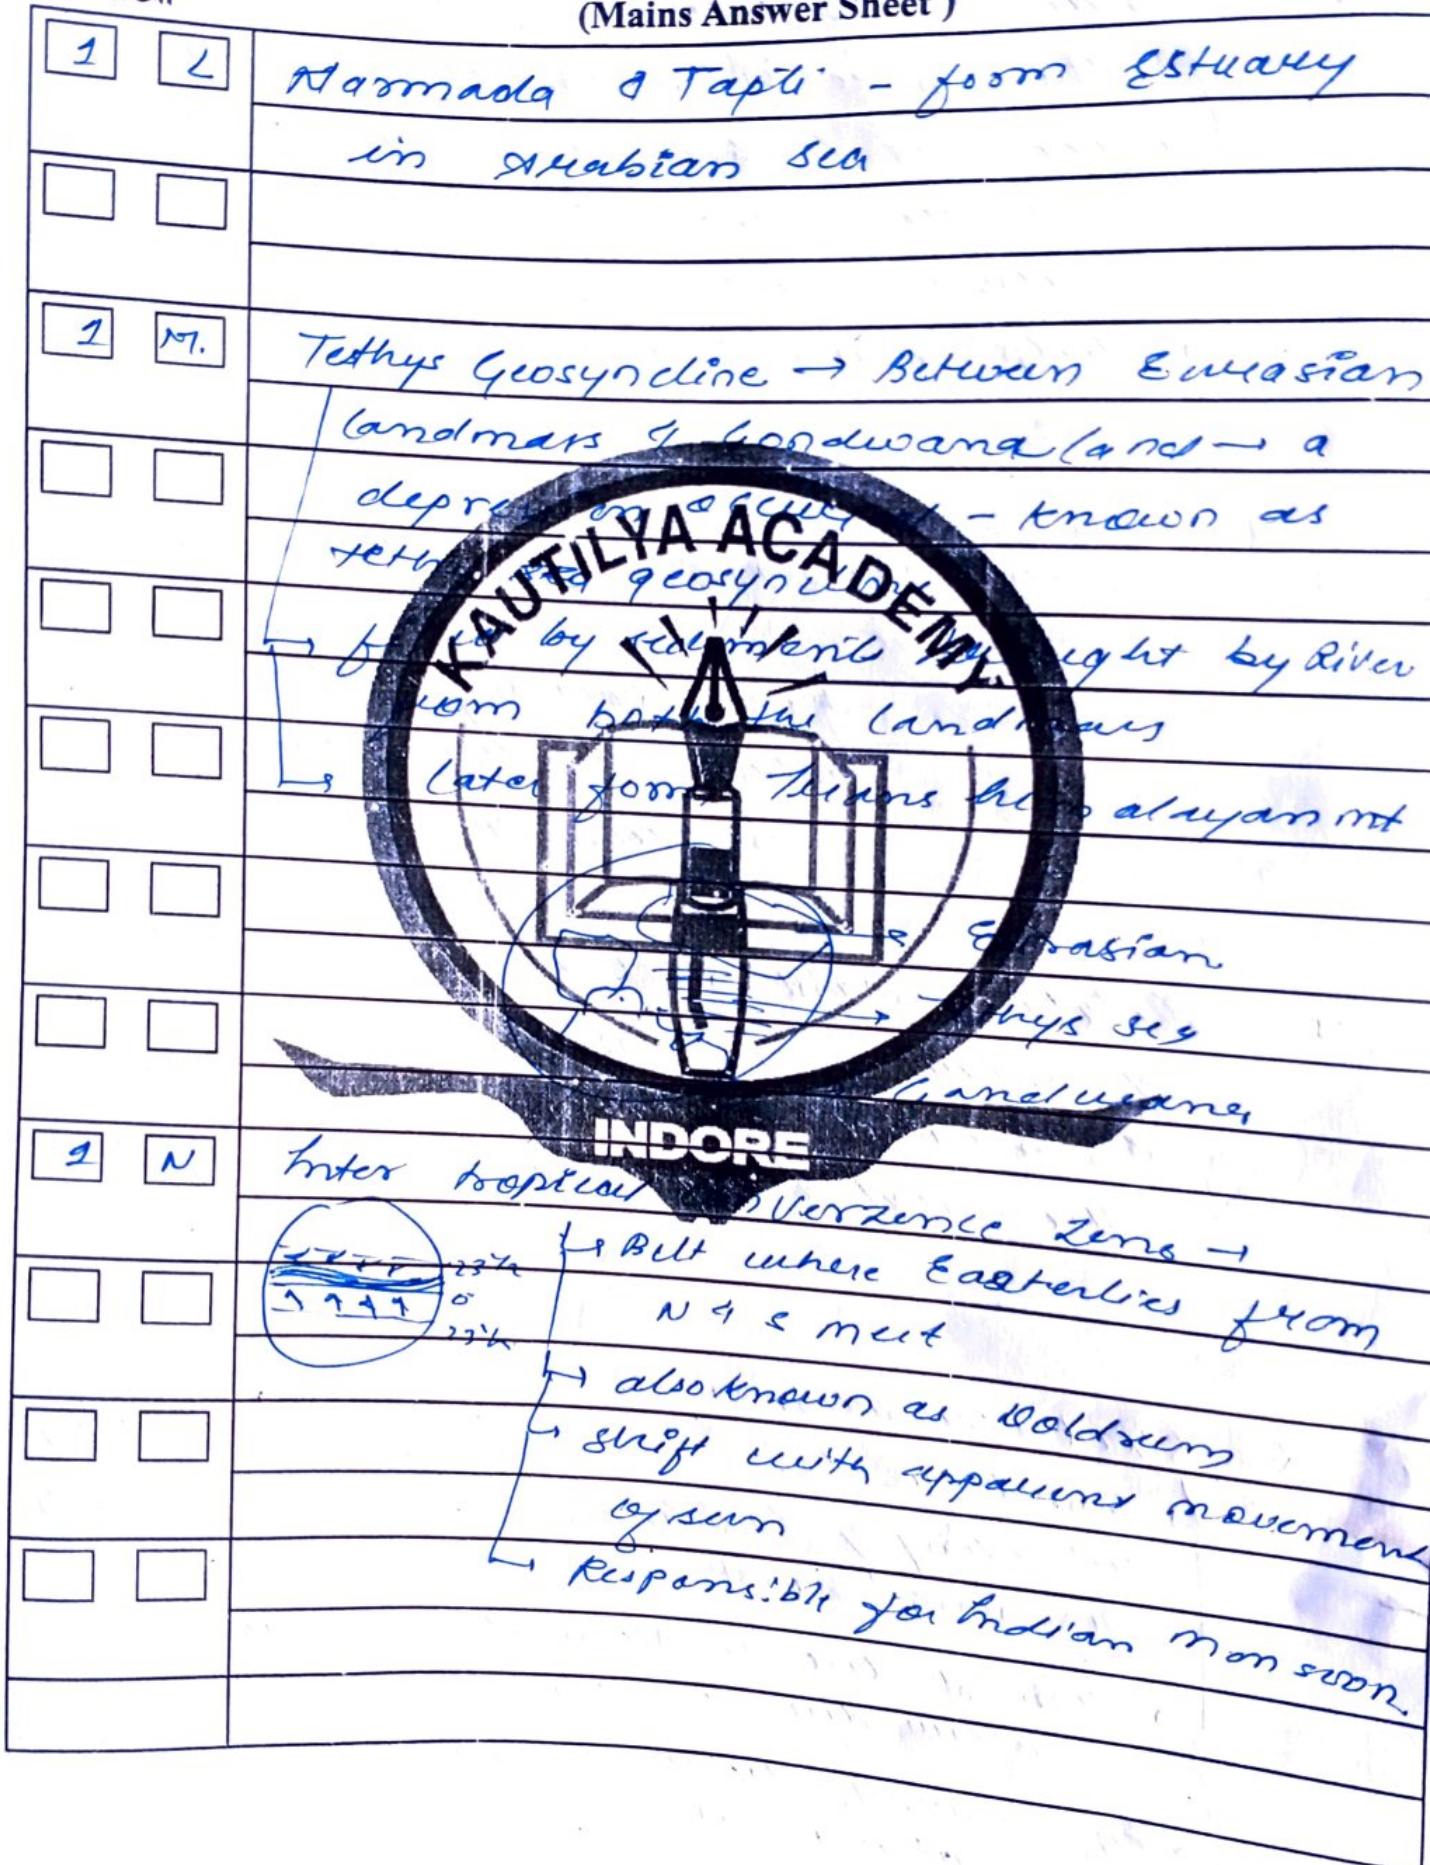 (Mains Answer Sheet )
1 L Narmada & Tapti - form Estuary
in Arabian Sea
1 M. Tethys Geosyncline → Between Eurasian
landmass & Gondwana land → a
depression - known as
geosyncline
→ by sediments brought by River
from both the landmass
→ later form Himalayan mt
KAUTILYA ACADEMY
Eurasian
Tethys sea
Gandwana
INDORE
1 N Inter tropical Converzence Zone →
23½
0
23½
→ Belt where Easterlies from
N & S meet
→ also known as Doldrum
→ shift with apparent movement
of sun
→ Responsible for Indian Monsoon.